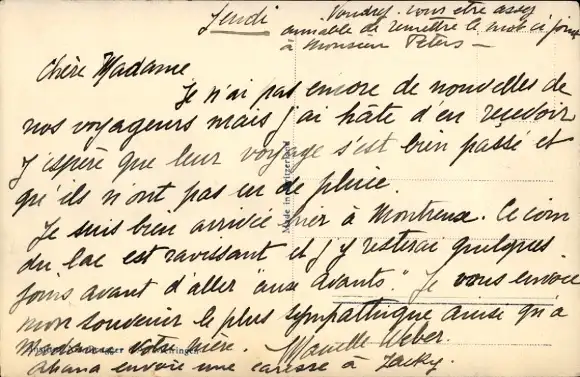 Jeudi
Voudrez-vous être assez
aimable de remettre le mot ci joint
à Monsieur Péters -
Chère Madame
Je n'ai pas encore de nouvelles de
nos voyageurs mais j'ai hâte d'en recevoir
J'espère que leur voyage s'est bien passé et
qu'ils n'ont pas eu de pluie.
Je suis bien arrivée hier à Montreux. Ce coin
du lac est ravissant et j'y resterai quelques
jours avant d'aller "aux Avants". Je vous envoie
mon souvenir le plus sympathique ainsi qu'à
Madame votre mère. Weber.
envoie une caresse à Jacky.
Made in Switzerland